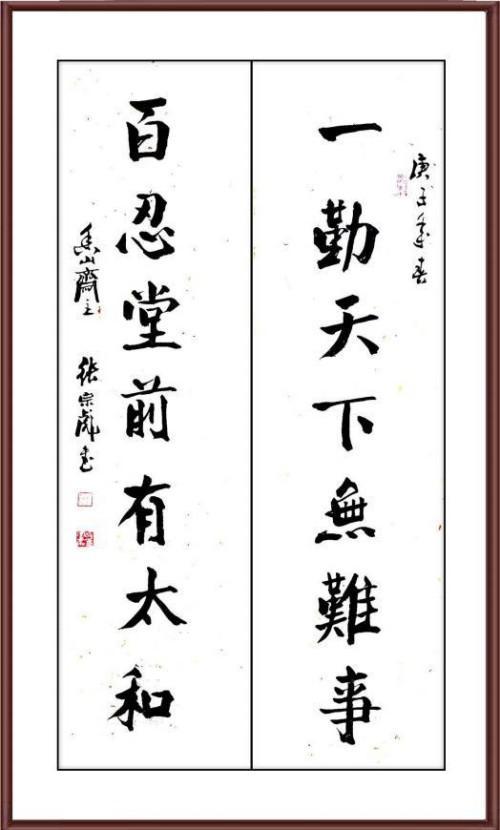 庚子年春
一勤天下無難事
百忍堂前有太和
香山齋主 張宗彪書